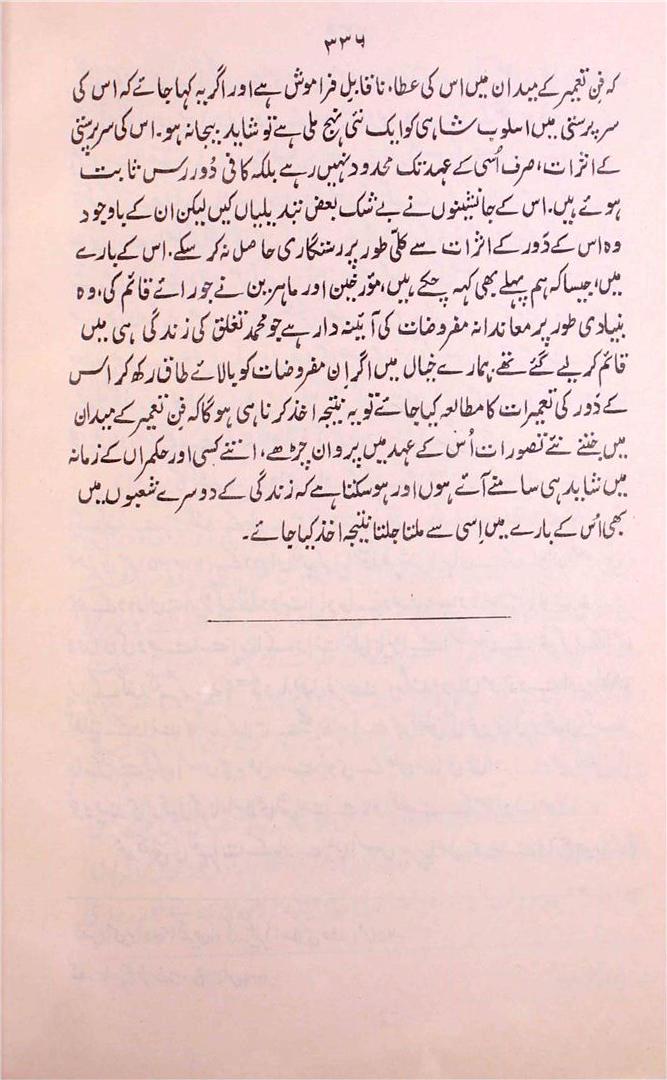 ۳۳۶
کہ فنِ تعمیر کے میدان میں اس کی عطاء ناقابلِ فراموش ہے اور اگر یہ کہا جائے کہ اس کی
سرپرستی میں اسلوب شاہی کو ایک نئی نہج ملی ہے تو شاید بیجا نہ ہو۔ اس کی سرپرستی
کے اثرات، صرف اُسی کے عہد تک محدود نہیں رہے بلکہ کافی دُور رس ثابت
ہوئے ہیں۔ اس کے جانشینوں نے بے شک بعض تبدیلیاں کیں لیکن ان کے باوجود
وہ اس کے دَور کے اثرات سے کلّی طور پر رستگاری حاصل نہ کر سکے۔ اس کے بارے
میں، جیسا کہ ہم پہلے بھی کہہ چکے ہیں، مؤرخین اور ماہرین نے جو رائے قائم کی، وہ
بنیادی طور پر معاندانہ مفروضات کی آئینہ دار ہے جو محمد تغلق کی زندگی ہی میں
قائم کر لیے گئے تھے۔ ہمارے خیال میں اگر اِن مفروضات کو بالائے طاق رکھ کر اس
کے دَور کی تعمیرات کا مطالعہ کیا جائے تو یہ نتیجہ اخذ کرنا ہی ہو گا کہ فنِ تعمیر کے میدان
میں جتنے نئے تصورات اُس کے عہد میں پروان چڑھے، اتنے کسی اور حکمراں کے زمانہ
میں شاید ہی سامنے آئے ہوں اور ہو سکتا ہے کہ زندگی کے دوسرے شعبوں میں
بھی اُس کے بارے میں اِسی سے ملتا جلتا نتیجہ اخذ کیا جائے۔